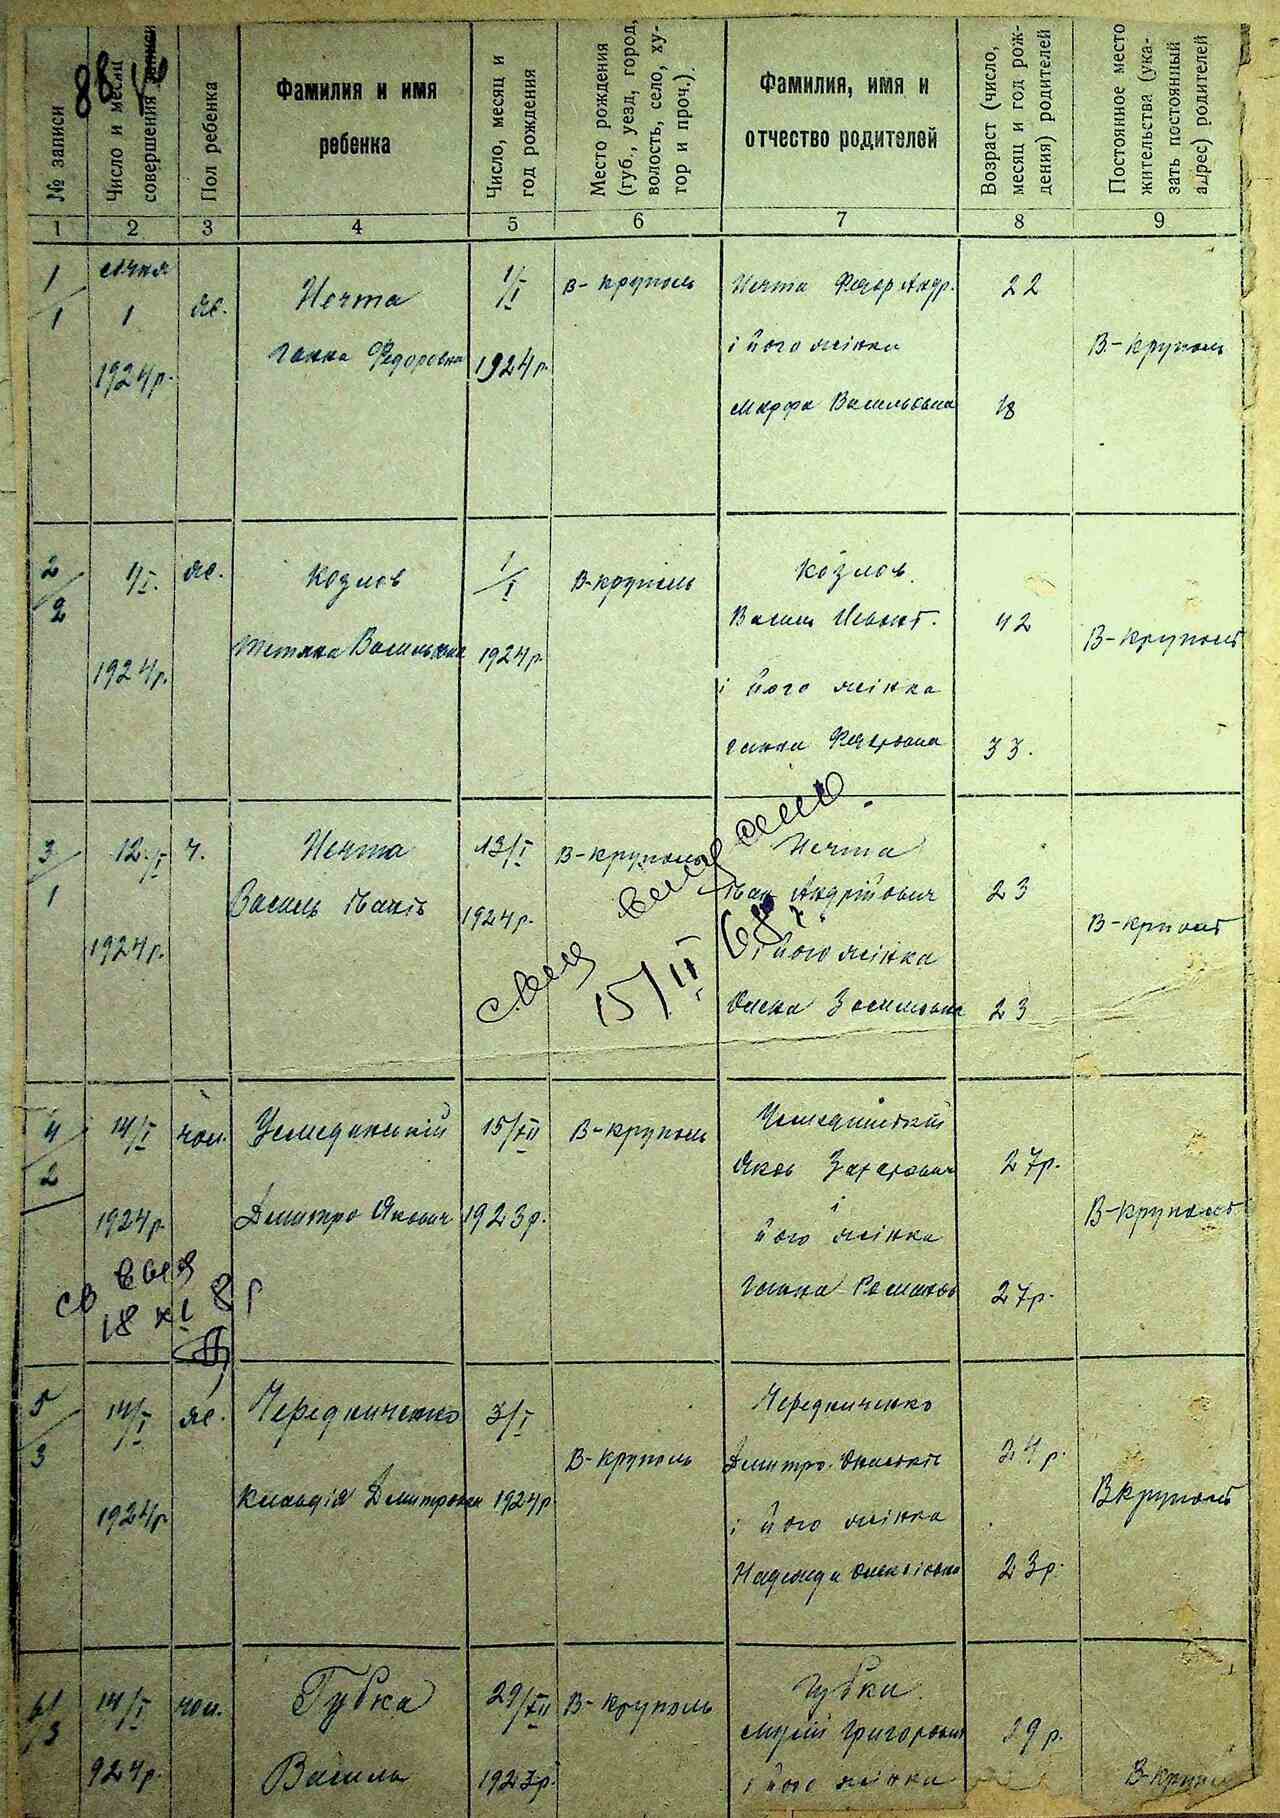 88
№ записи
Число и месяц совершения записи
Пол ребенка
Фамилия и имя ребенка
Число, месяц и год рождения
Место рождения (губ., уезд, город, волость, село, хутор и проч.).
Фамилия, имя и отчество родителей
Возраст (число, месяц и год рождения) родителей
Постоянное место жительства (указать постоянный адрес) родителей
1 2 3 4 5 6 7 8 9
1/1 січня 1 1924р. жс. Нечта 1/I В-круполь Нечта Федор Андр. 22
Ганна Федоровна 1924р. і його жінка В-круполь
Марфа Васильовна 18
2/2 1/I. жс. Козлов 1/I В-круполь Козлов
1924р. Тетяна Васильовна 1924р. Василь 42 В-круполь
і його жінка
Ганна Федоровна 33.
3/1 12/I ч. Нечта 13/I В-круполь Нечта
1924р. Василь Іванів 1924р. Іван Андрійович 23 В-круполь
і його жінка
Олена 23
15/II 68
4/2 14/I чол. 15/XII В-круполь
Яков Захарович 27р.
1924р. Дмитро Якович 1923р. і його жінка В-круполь
Ганна Романов 27р.
св выд
18 XI 8 г
5/3 14/I жс. Чередниченко 3/I Чередниченко
В-круполь Дмитро 24р.
1924р. Клавдія Дмитровна 1924р і його жінка Вкруполь
Надежда Олексіовна 23р.
6/3 14/I чол. Губка 29/XII В-круполь Губка
Мусій Григорович 29р.
924р. Василь 1923р. і його жінка В-круп